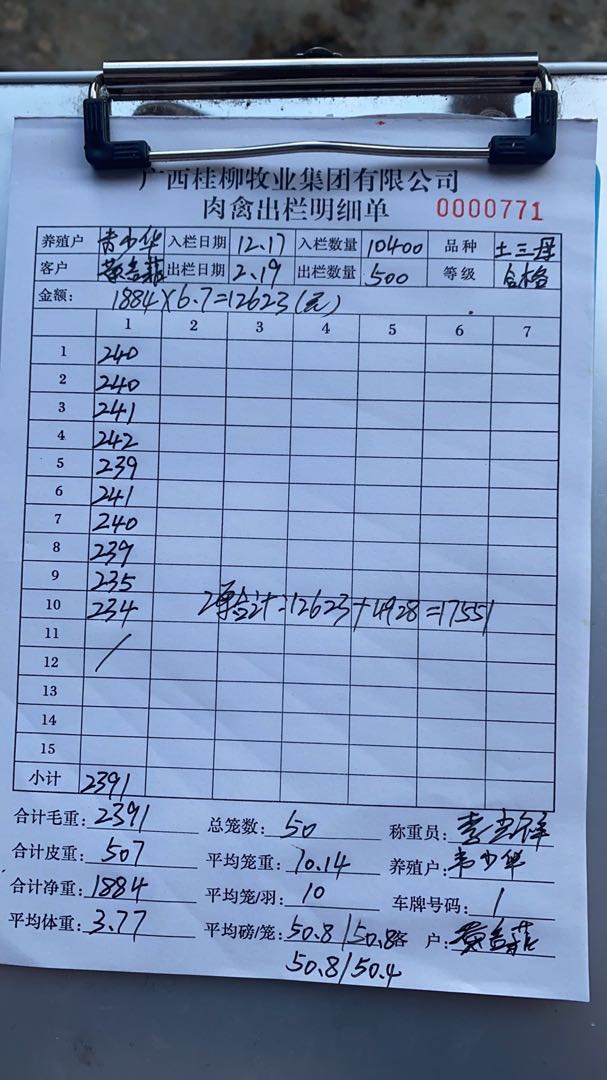 广西桂柳牧业集团有限公司
肉禽出栏明细单 0000771
养殖户 韦少华 入栏日期 12.17 入栏数量 10400 品种 土三母
客户 出栏日期 2.19 出栏数量 500 等级 合格
金额: 1884×6.7=12623(元)
1 2 3 4 5 6 7
1 240
2 240
3 241
4 242
5 239
6 241
7 240
8 239
9 235
10 234 2车合计:12623+4928=17551
11
12 /
13
14
15
小计 2391
合计毛重: 2391 总笼数: 50 称重员:
合计皮重: 507 平均笼重: 10.14 养殖户: 韦少华
合计净重: 1884 平均笼/羽: 10 车牌号码: 1
平均体重: 3.77 平均磅/笼: 50.8/50.8 客户:
50.8/50.4